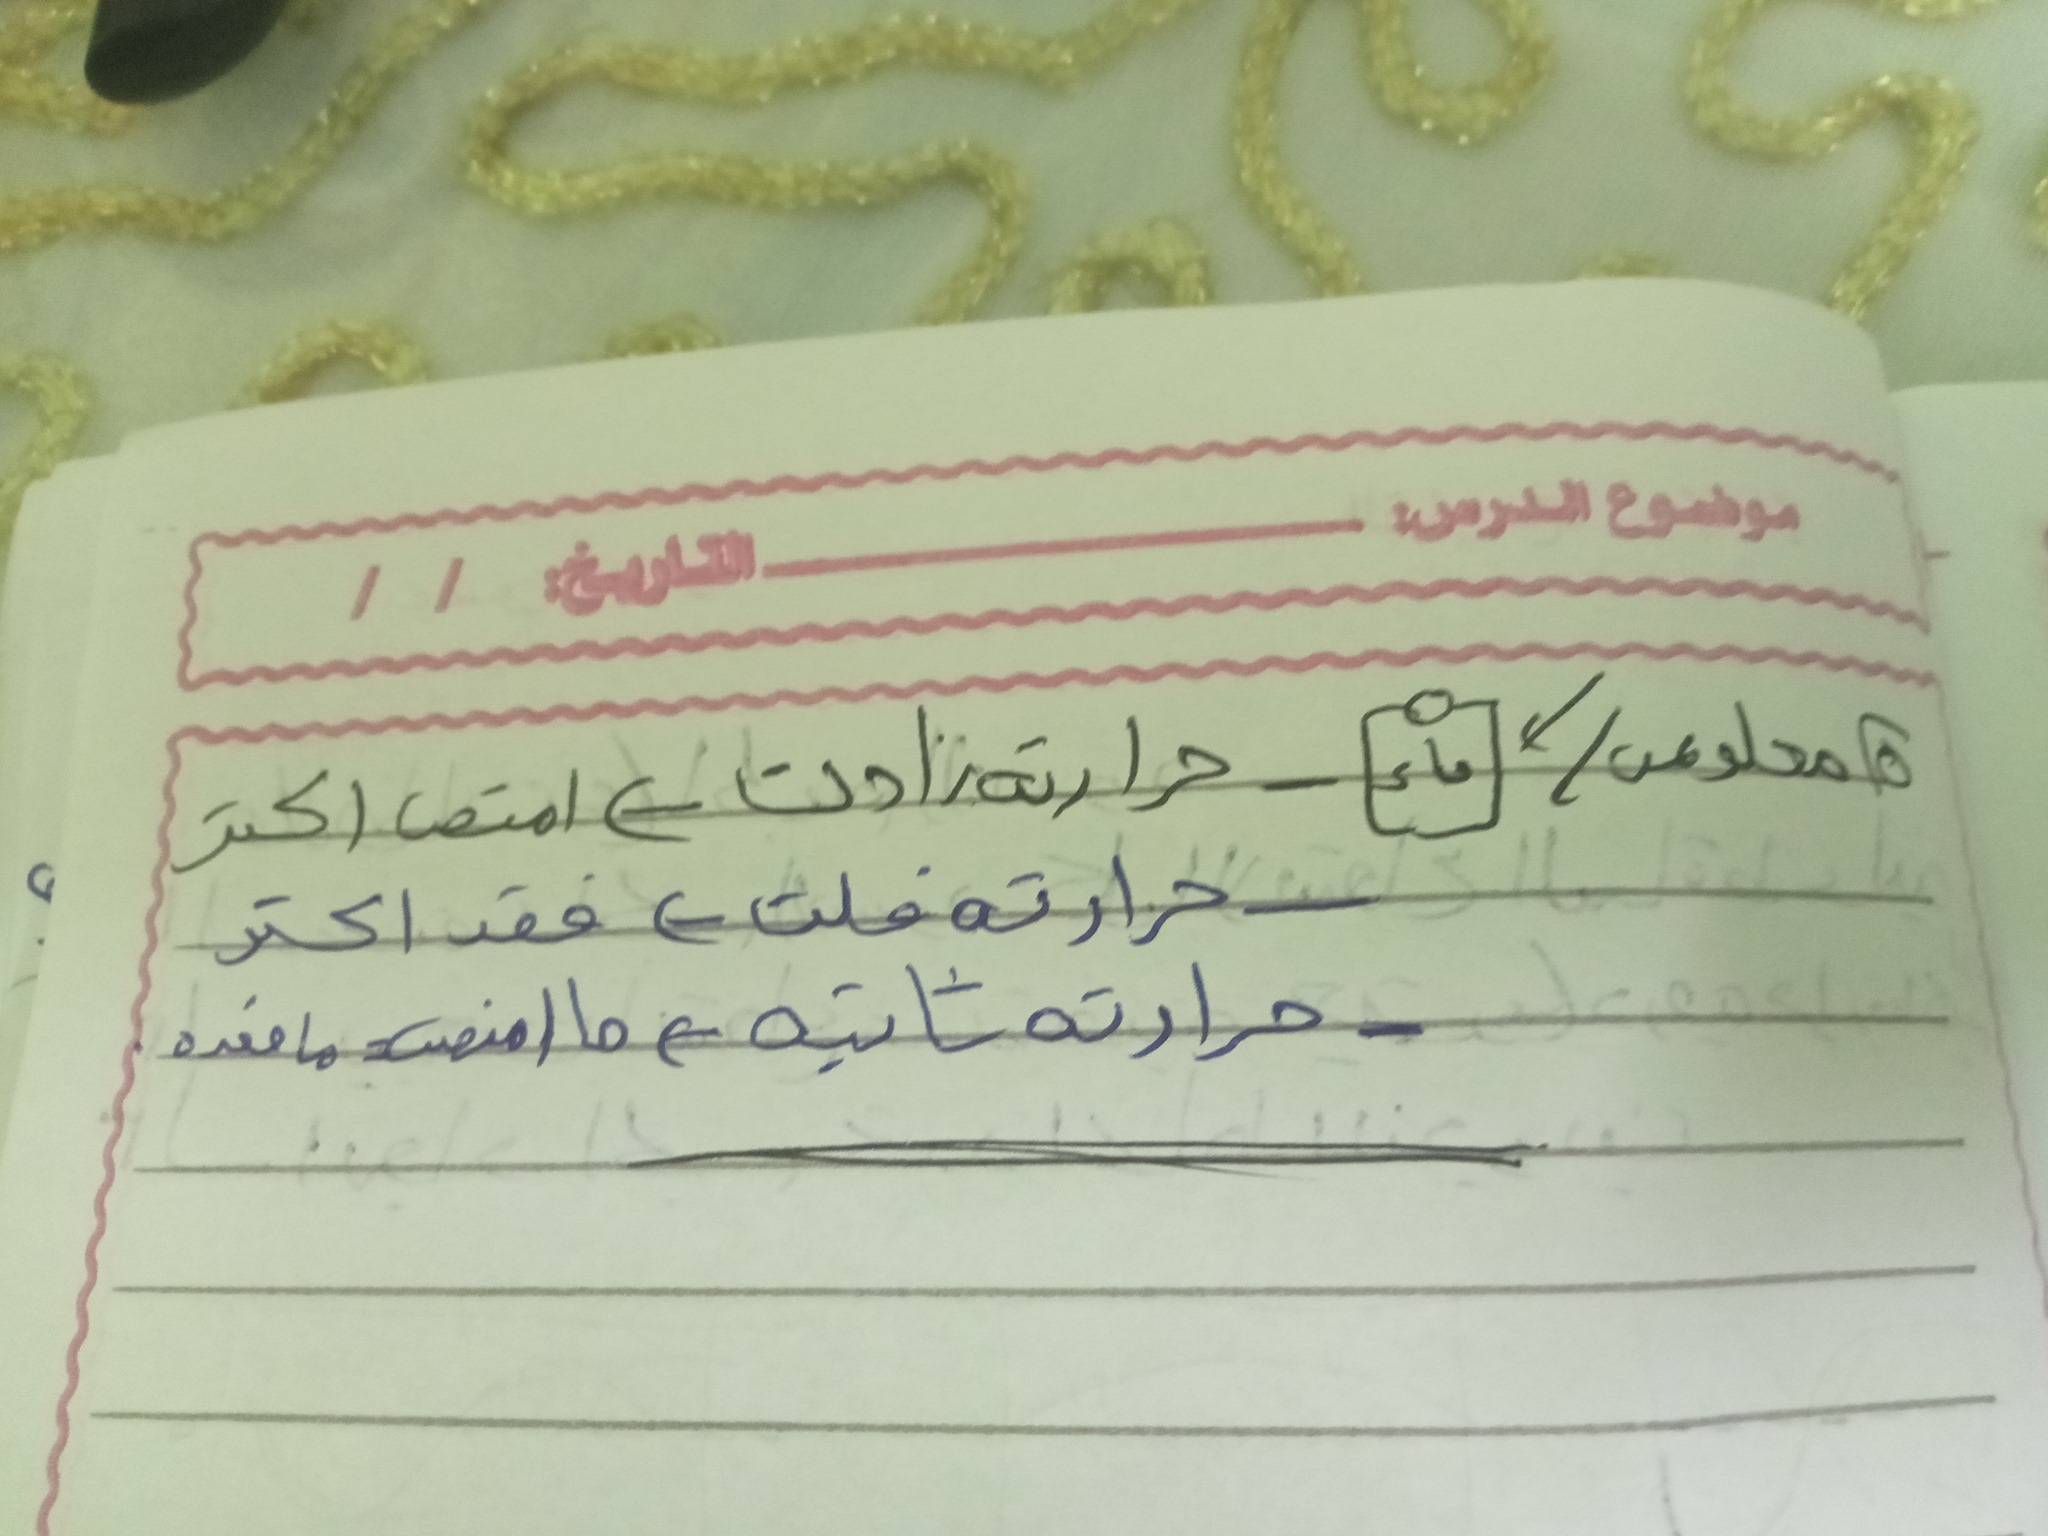 موضوع الدرس: التاريخ: / /
ماء - حرارته زادت ← امتص اكثر
- حرارته قلت ← فقد اكثر
- حرارته ثابته ← ما امتصه ما فقده